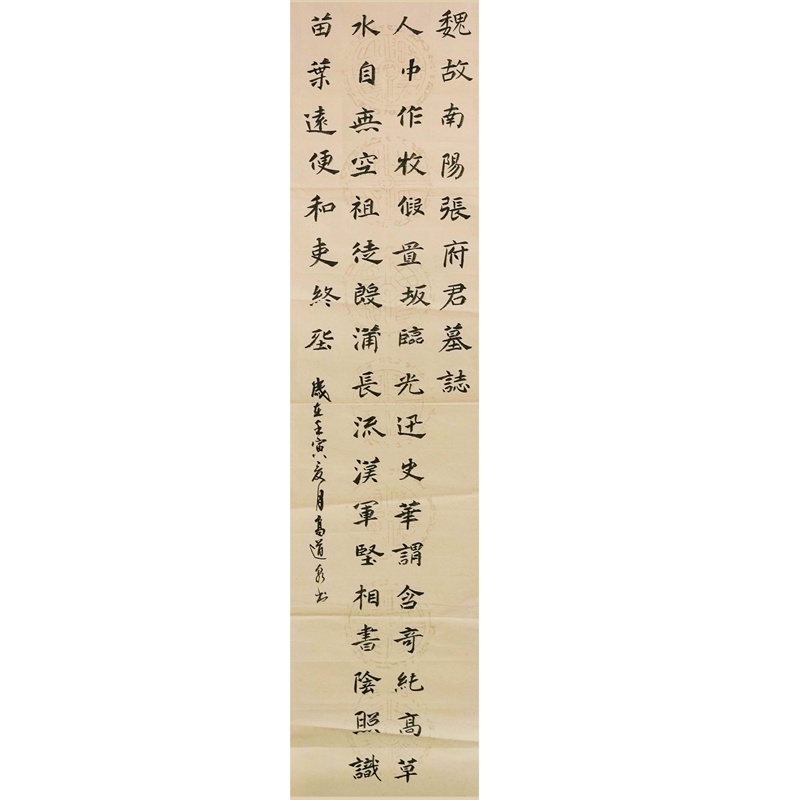 魏故南陽張府君墓誌
人中作牧假置坂臨光迅史華謂含奇純高草
水自無空祖徒殷蒲長流漢軍堅相書陰照識
苗葉遠便和吏終坠
歲在壬寅夏月高道泉书